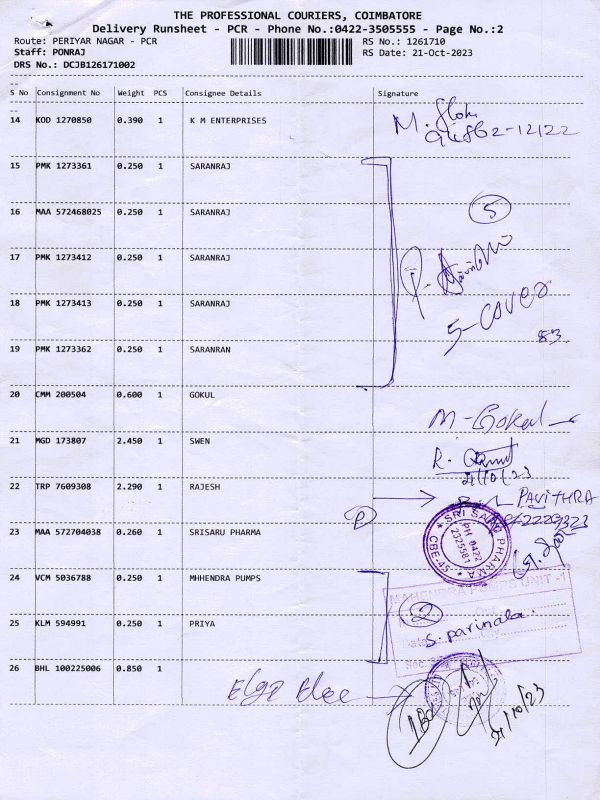 THE PROFESSIONAL COURIERS, COIMBATORE
Delivery Runsheet - PCR - Phone No.:0422-3505555 - Page No.:2
Route: PERIYAR NAGAR - PCR RS No.: 1261710
Staff: PONRAJ RS Date: 21-Oct-2023
DRS No.: DCJB126171002
S No Consignment No Weight PCS Consignee Details Signature
14 KOD 1270850 0.390 1 K M ENTERPRISES
15 PMK 1273361 0.250 1 SARANRAJ
16 MAA 572468025 0.250 1 SARANRAJ
5
17 PMK 1273412 0.250 1 SARANRAJ
18 PMK 1273413 0.250 1 SARANRAJ
5-COVER
19 PMK 1273362 0.250 1 SARANRAN
20 CMM 200504 0.600 1 GOKUL
M-Gokul
21 MGD 173807 2.450 1 SWEN
21/10/23
22 TRP 7609308 2.290 1 RAJESH
PAVITHRA
23 MAA 572704038 0.260 1 SRISARU PHARMA
SRI SARU PHARMA
PH 0422
2325581
CBE-45
24 VCM 5036788 0.250 1 MHHENDRA PUMPS
MAHENDRA PUMPS UNIT -1
2
25 KLM 594991 0.250 1 PRIYA
S. parimala.
26 BHL 100225006 0.850 1
Elgi Elec
21/10/23